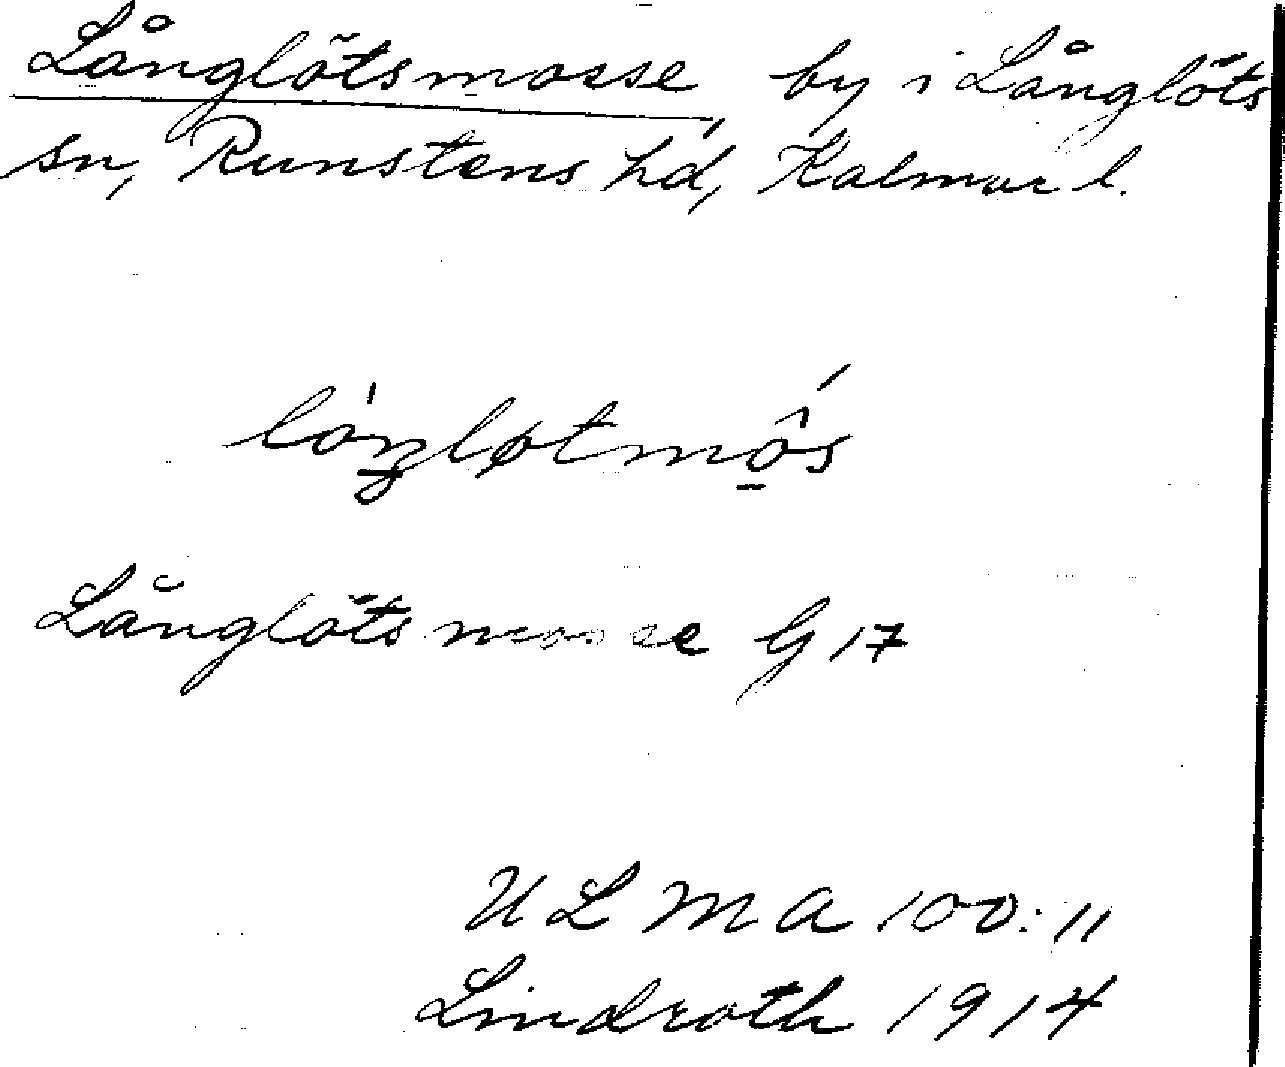 Långlötsmosse, by i Långlöts
sn, Runstens hd, Kalmar l.
Långlötsmosse G 17
ULMA 100:11
Lindroth 1914